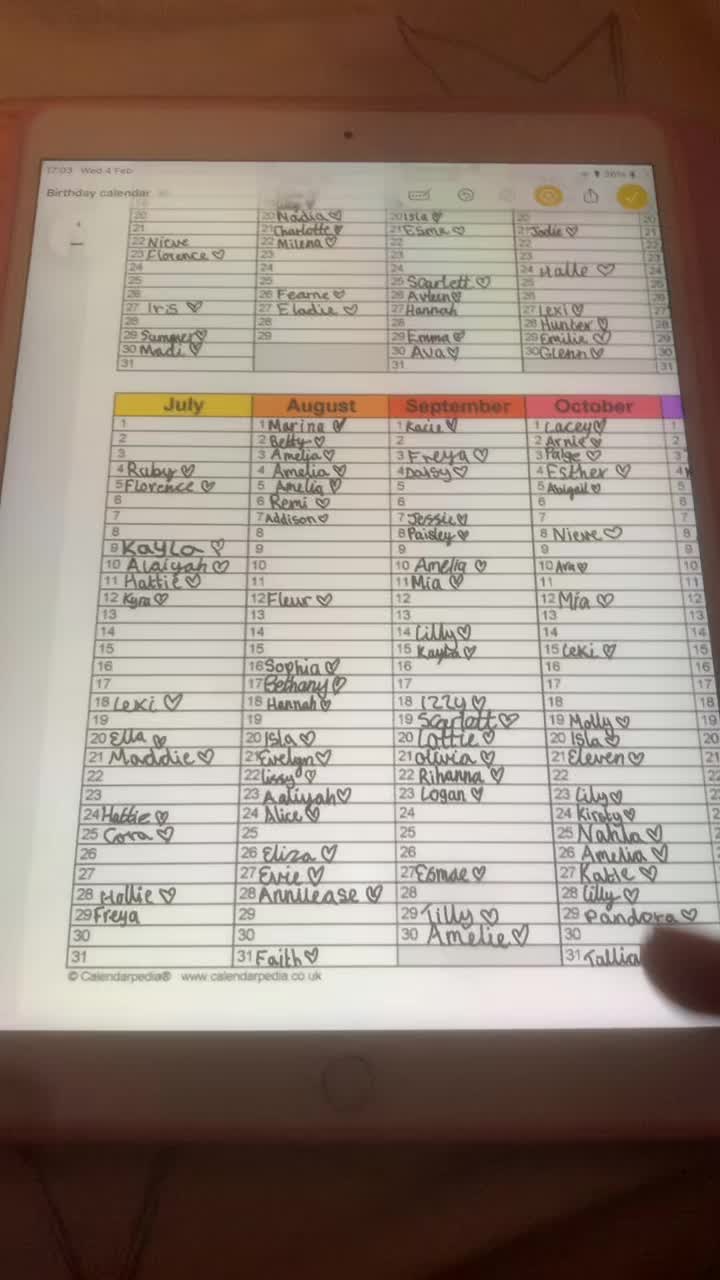 17:03 Wed 4 Feb 36%
Birthday calendar
20 20 Nadia ♡ 20 Isla ♡ 20 20
21 21 Charlotte ♡ 21 Esme ♡ 21 Jodie ♡ 21
22 Nieve 22 Milena ♡ 22 22 22
23 Florence ♡ 23 23 23 23
24 24 24 24 Halle ♡ 24
25 25 25 Scarlett ♡ 25 25
26 26 Fearne ♡ 26 Avleen ♡ 26 26
27 Iris ♡ 27 Eladie ♡ 27 Hannah 27 Lexi ♡ 27
28 28 28 28 Hunter ♡ 28
29 Summer ♡ 29 29 Emma ♡ 29 Emilie ♡ 29
30 Madi ♡ 30 Ava ♡ 30 Glenn ♡ 30
31 31 31
July August September October
1 1 Marina ♡ 1 Kacie ♡ 1 Lacey ♡ 1
2 2 Betty ♡ 2 2 Arnie ♡ 2
3 3 Amelia ♡ 3 Freya ♡ 3 Paige ♡ 3
4 Ruby ♡ 4 Amelia ♡ 4 Daisy ♡ 4 Esther ♡ 4
5 Florence ♡ 5 Amelia ♡ 5 5 Abigail ♡ 5
6 6 Remi ♡ 6 6 6
7 7 Addison ♡ 7 Jessie ♡ 7 7
8 8 8 Paisley ♡ 8 Nieve ♡ 8
9 Kayla ♡ 9 9 9 9
10 Alaiyah ♡ 10 10 Amelia ♡ 10 Ava ♡ 10
11 Hattie ♡ 11 11 Mia ♡ 11 11
12 Kyra ♡ 12 Fleur ♡ 12 12 Mia ♡ 12
13 13 13 13 13
14 14 14 Lilly ♡ 14 14
15 15 15 Kayla ♡ 15 Lexi ♡ 15
16 16 Sophia ♡ 16 16 16
17 17 Bethany ♡ 17 17 17
18 Lexi ♡ 18 Hannah ♡ 18 Izzy ♡ 18 18
19 19 19 Scarlett ♡ 19 Molly ♡ 19
20 Ella ♡ 20 Isla ♡ 20 Lottie ♡ 20 Isla ♡ 20
21 Maddie ♡ 21 Evelyn ♡ 21 Olivia ♡ 21 Eleven ♡ 21
22 22 Lissy ♡ 22 Rihanna ♡ 22 22
23 23 Aaliyah ♡ 23 Logan ♡ 23 Lily ♡ 23
24 Hattie ♡ 24 Alice ♡ 24 24 Kirsty ♡ 2
25 Cora ♡ 25 25 25 Nahla ♡ 2
26 26 Eliza ♡ 26 26 Amelia ♡ 2
27 27 Evie ♡ 27 Esmae ♡ 27 Katie ♡ 2
28 Hollie ♡ 28 Annilease ♡ 28 28 Lilly ♡
29 Freya 29 29 Tilly ♡ 29 Pandora ♡
30 30 30 Amelie ♡ 30
31 31 Faith ♡ 31 Tallia
© Calendarpedia® www.calendarpedia.co.uk